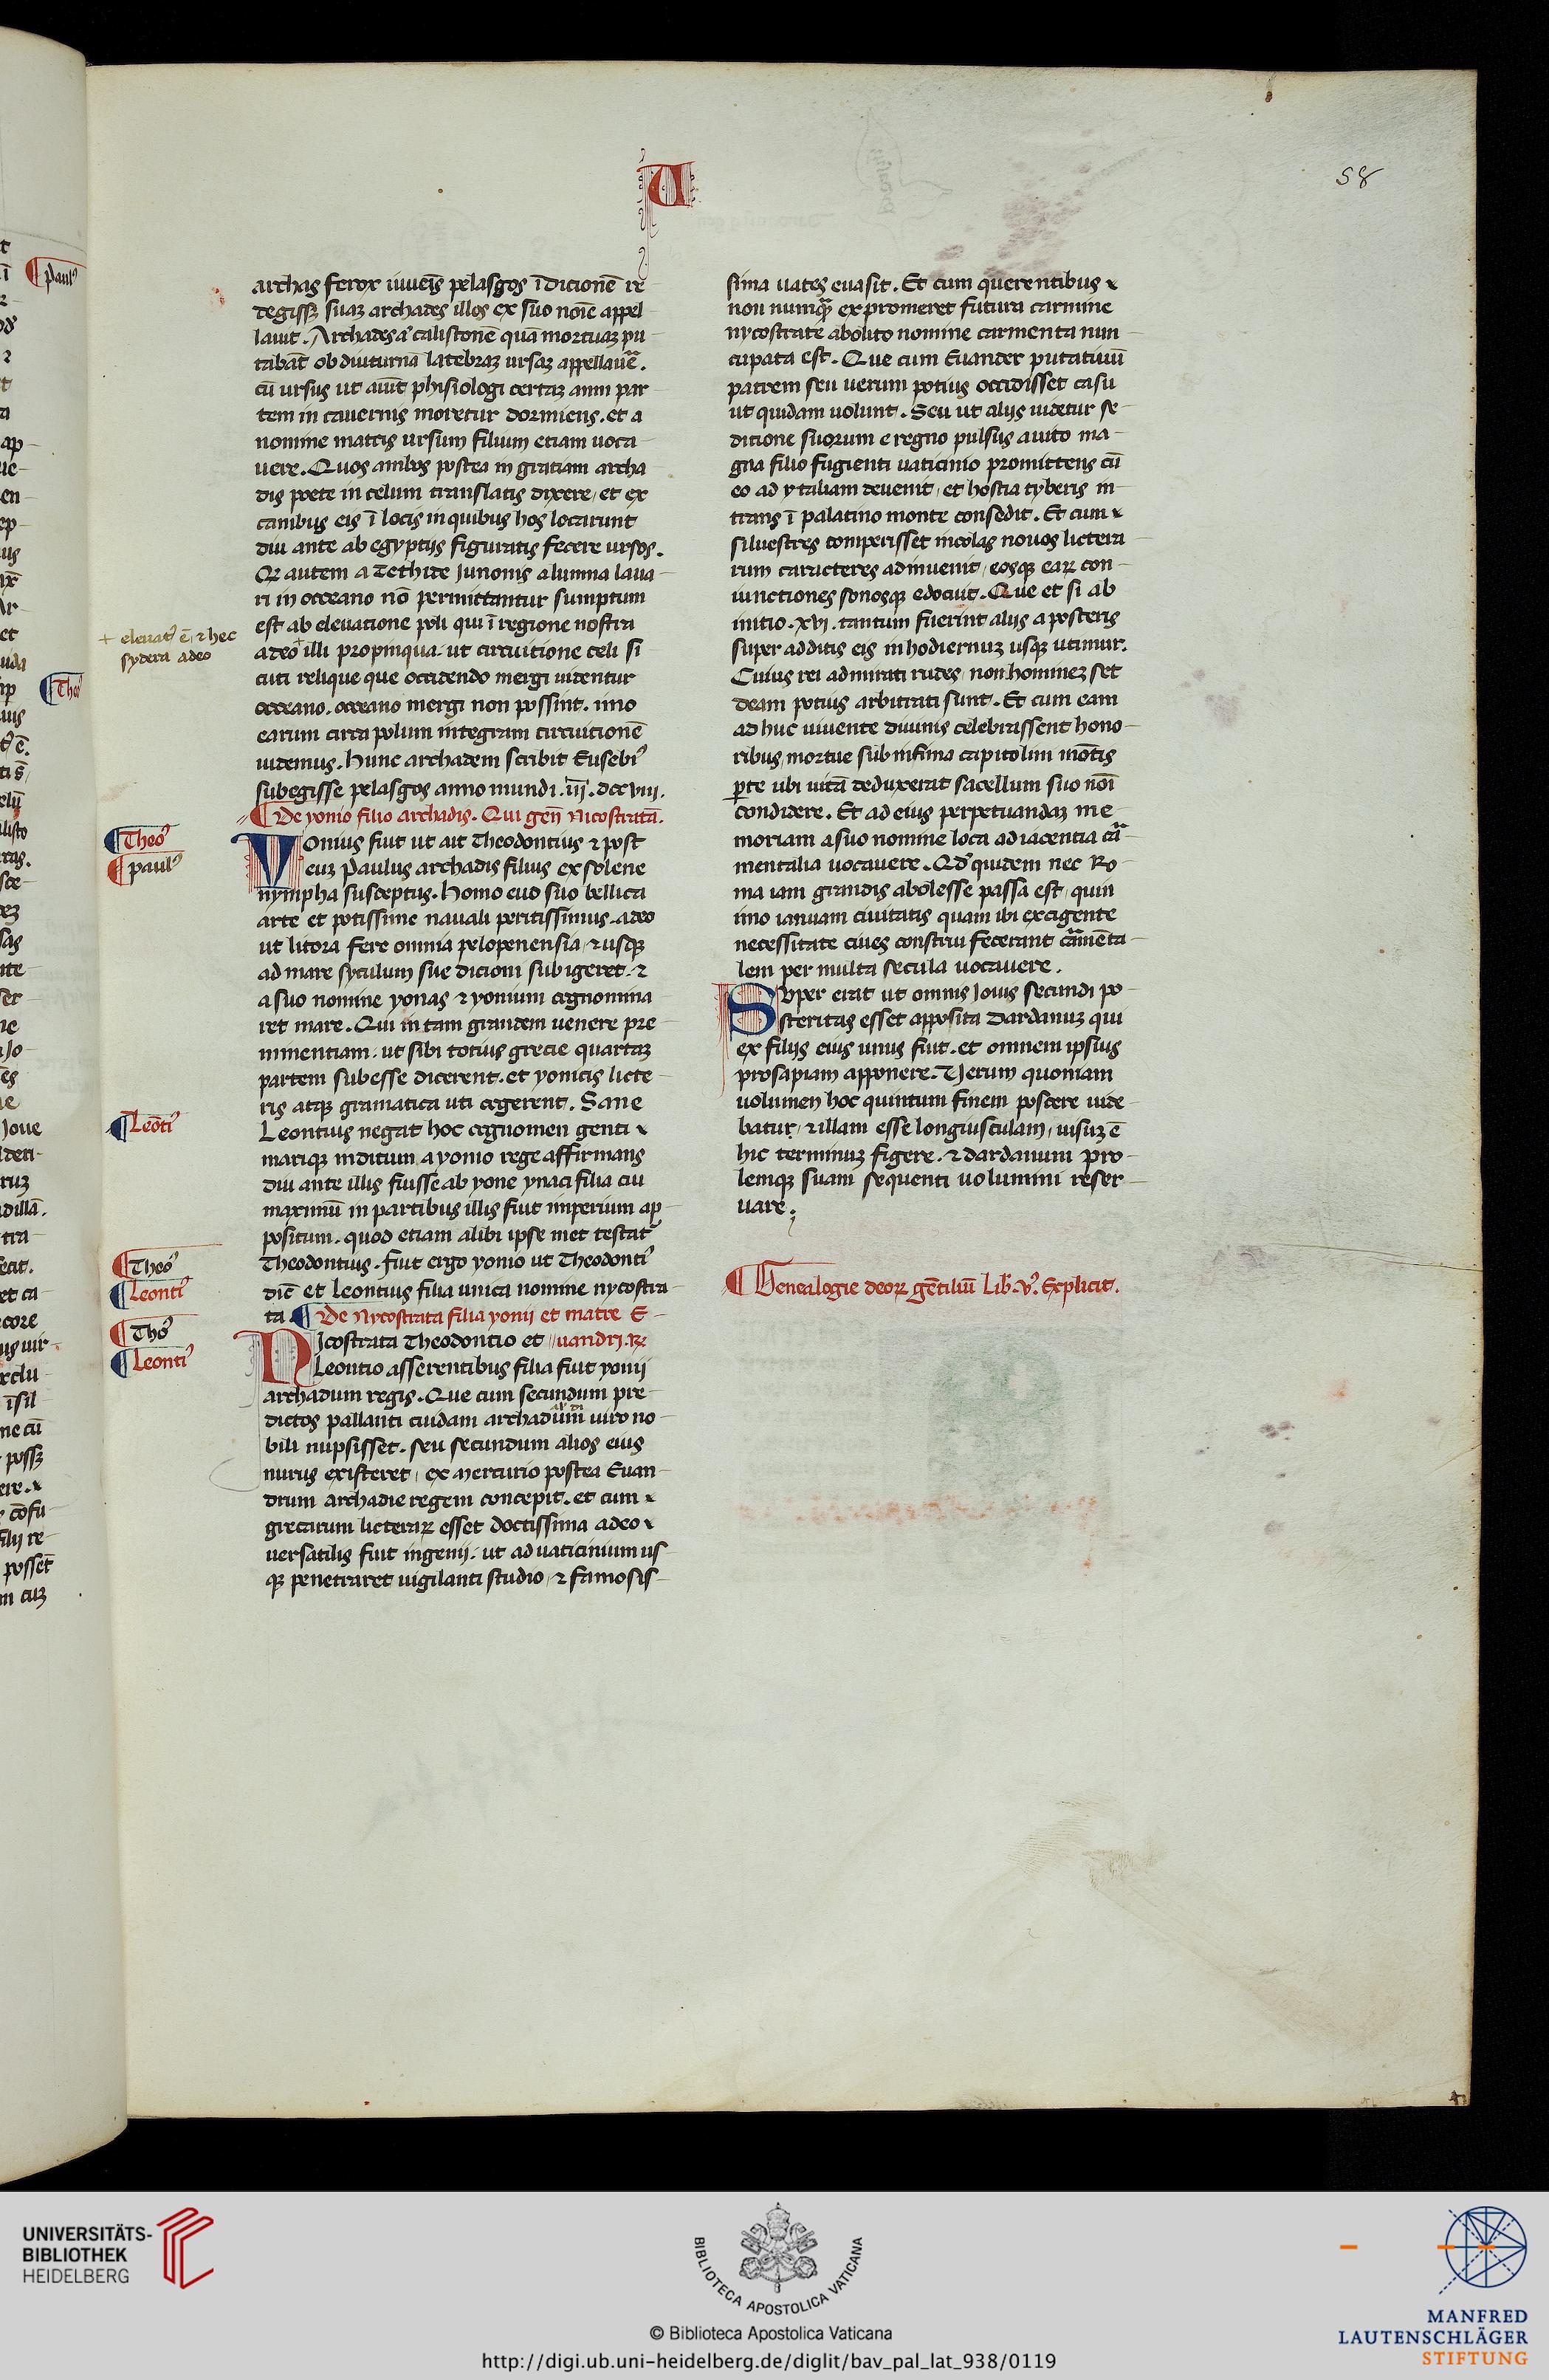 V
58
archas ferox iuueīs pelasgos ī dicionē re
degissꝫ suaꝫ archades illos ex suo noīe appel
lauit. Archades aͥ calistonē quā mortuaꝫ pu
tabāt ob diuturnā latebraꝫ ursaꝫ appellaueᷓ.
cū ursus ut aiūt phisiologi certaꝫ anni par
tem in cauernis moretur dormiens. et a
nomine matris ursum filium etiam uoca
uere. Quos ambos postea in gratiam archa
dis poete in celum translatis dixere, et ex
canibus eis ī locis in quibus hos locarunt
diu ante ab egyptijs figuratis fecere ursos.
Qꝫ autem a Tethide Junonis alumna laua
ri in occeano nō permittantur sumptum
est ab eleuatione poli qui ī regione nostra
+ eleuatꝰ ē, ⁊ hec
sydera adeo
adeo illi propinqua. ut circuitione celi si
cuti relique que occidendo mergi uidentur
occeano. occeano mergi non possint. imo
earum circa polum integram circuitionē
uidemus. Hunc archadem scribit Eusebiꝰ
subegisse pelasgos anno mundi .iij. dccviij.
¶ De yonio filio archadis. Qui genͭ Nicostratā.
¶ Theoꝰ
¶ paulꝰ
YOnius fuit ut ait Theodontius ⁊ post
euꝫ Paulus archadis filius ex solene
nympha susceptus. Homo euo suo bellica
arte et potissime nauali peritissimus. adeo
ut litora fere omnia peloponensia, ⁊ usqꝫ
ad mare syculum sue dicioni subigeret. ⁊
a suo nomine yonas ⁊ yonium cognomina
ret mare. Qui in tam grandem uenere pre
minentiam. ut sibi totius grecie quartaꝫ
partem subesse dicerent. et yonicis licte
ris atqꝫ gramatica uti cogerent. Sane
¶ Leōtiꝰ
Leontius negat hoc cognomen genti
mariqꝫ inditum a yonio rege affirmans
diu ante illis fuisse ab yone ynaci filia cui
maximū in partibus illis fuit imperium ap
positum. quod etiam alibi ipse met testatᷓ
¶ Theoꝰ
Theodontius. fuit ergo yonio ut Theodontiꝰ
¶ Leontiꝰ
dic̄ et Leontius filia unica nomine nycostra
ta. ¶ De Nycostrata filia yonij et matre E
¶ Thoꝰ
NIcostrata Theodontio et uandri. R
¶ Leontiꝰ
Leontio asserentibus filia fuit yonij
archadum regis. Que cum secundum pre
dictos pallanti cuidam archadum uiro no
bili nupsisset. seu secundum alios eius
nurus existeret, ex Mercurio postea Euan
drum archadie regem concepit. et cum
grecarum licteraꝝ esset doctissima adeo
uersatilis fuit ingenij. ut ad uaticinium us
qꝫ penetraret uigilanti studio, ⁊ famosis
sima uates euasit. Et cum querentibus
non numqᷓ expromeret futura carmine
nycostrate abolito nomine carmenta nun
cupata est. Que cum Euander putatiuū
patrem seu uerum potius occidisset casu
ut quidam uolunt. Seu ut alijs uidetur se
ditione suorum e regno pulsus auito ma
gna filio fugienti uaticinio promittens cū
eo ad ytaliam deuenit, et hostia tyberis in
trans ī palatino monte consedit. Et cum
siluestres comperisset incolas nouos lictera
rum caracteres adinuenit, eosqꝫ eaꝝ con
iunctiones sonosqꝫ edocuit. Que et si ab
initio .xvi. tantum fuerint alijs a posteris
super additis eis in hodiernuꝫ usqꝫ utimur.
Cuius rei admirati rudes, non homineꝫ set
deam potius arbitrati sunt. Et cum eam
ad huc uiuente diuinis celebrassent hono
ribus, mortue sub infima capitolini mōtis
ꝑte ubi uitā deduxerat sacellum suo noī
condidere. Et ad eius perpetuandaꝫ me
moriam a suo nomine loca adiacentia caᷓ
mentalia uocauere. Qd̓ quidem nec Ro
ma iam grandis abolesse passa est, quin
imo ianuam ciuitatis quam ibi exigente
necessitate ciues construi fecerant caᷓmēta
lem per multa secula uocauere.
SVper erat ut omnis Jouis secundi po
steritas esset apposita dardanuꝫ qui
ex filijs eius unus fuit. et omnem ipsius
prosapiam apponere. Verum quoniam
uolumen hoc quintum finem poscere uide
batur, ⁊ illam esse longiusculam, uisuꝫ ē
hic terminuꝫ figere. ⁊ dardanum pro
lemqꝫ suam sequenti uolumini reser
uare.
¶ Genealogie deoꝝ gētiliū Lib̓. vꝰ. Explicit.
¶ paulꝰ
¶ Theoꝰ
UNIVERSITÄTS-
BIBLIOTHEK
HEIDELBERG
BIBLIOTECA APOSTOLICA VATICANA
© Biblioteca Apostolica Vaticana
http://digi.ub.uni-heidelberg.de/diglit/bav_pal_lat_938/0119
MANFRED
LAUTENSCHLÄGER
STIFTUNG